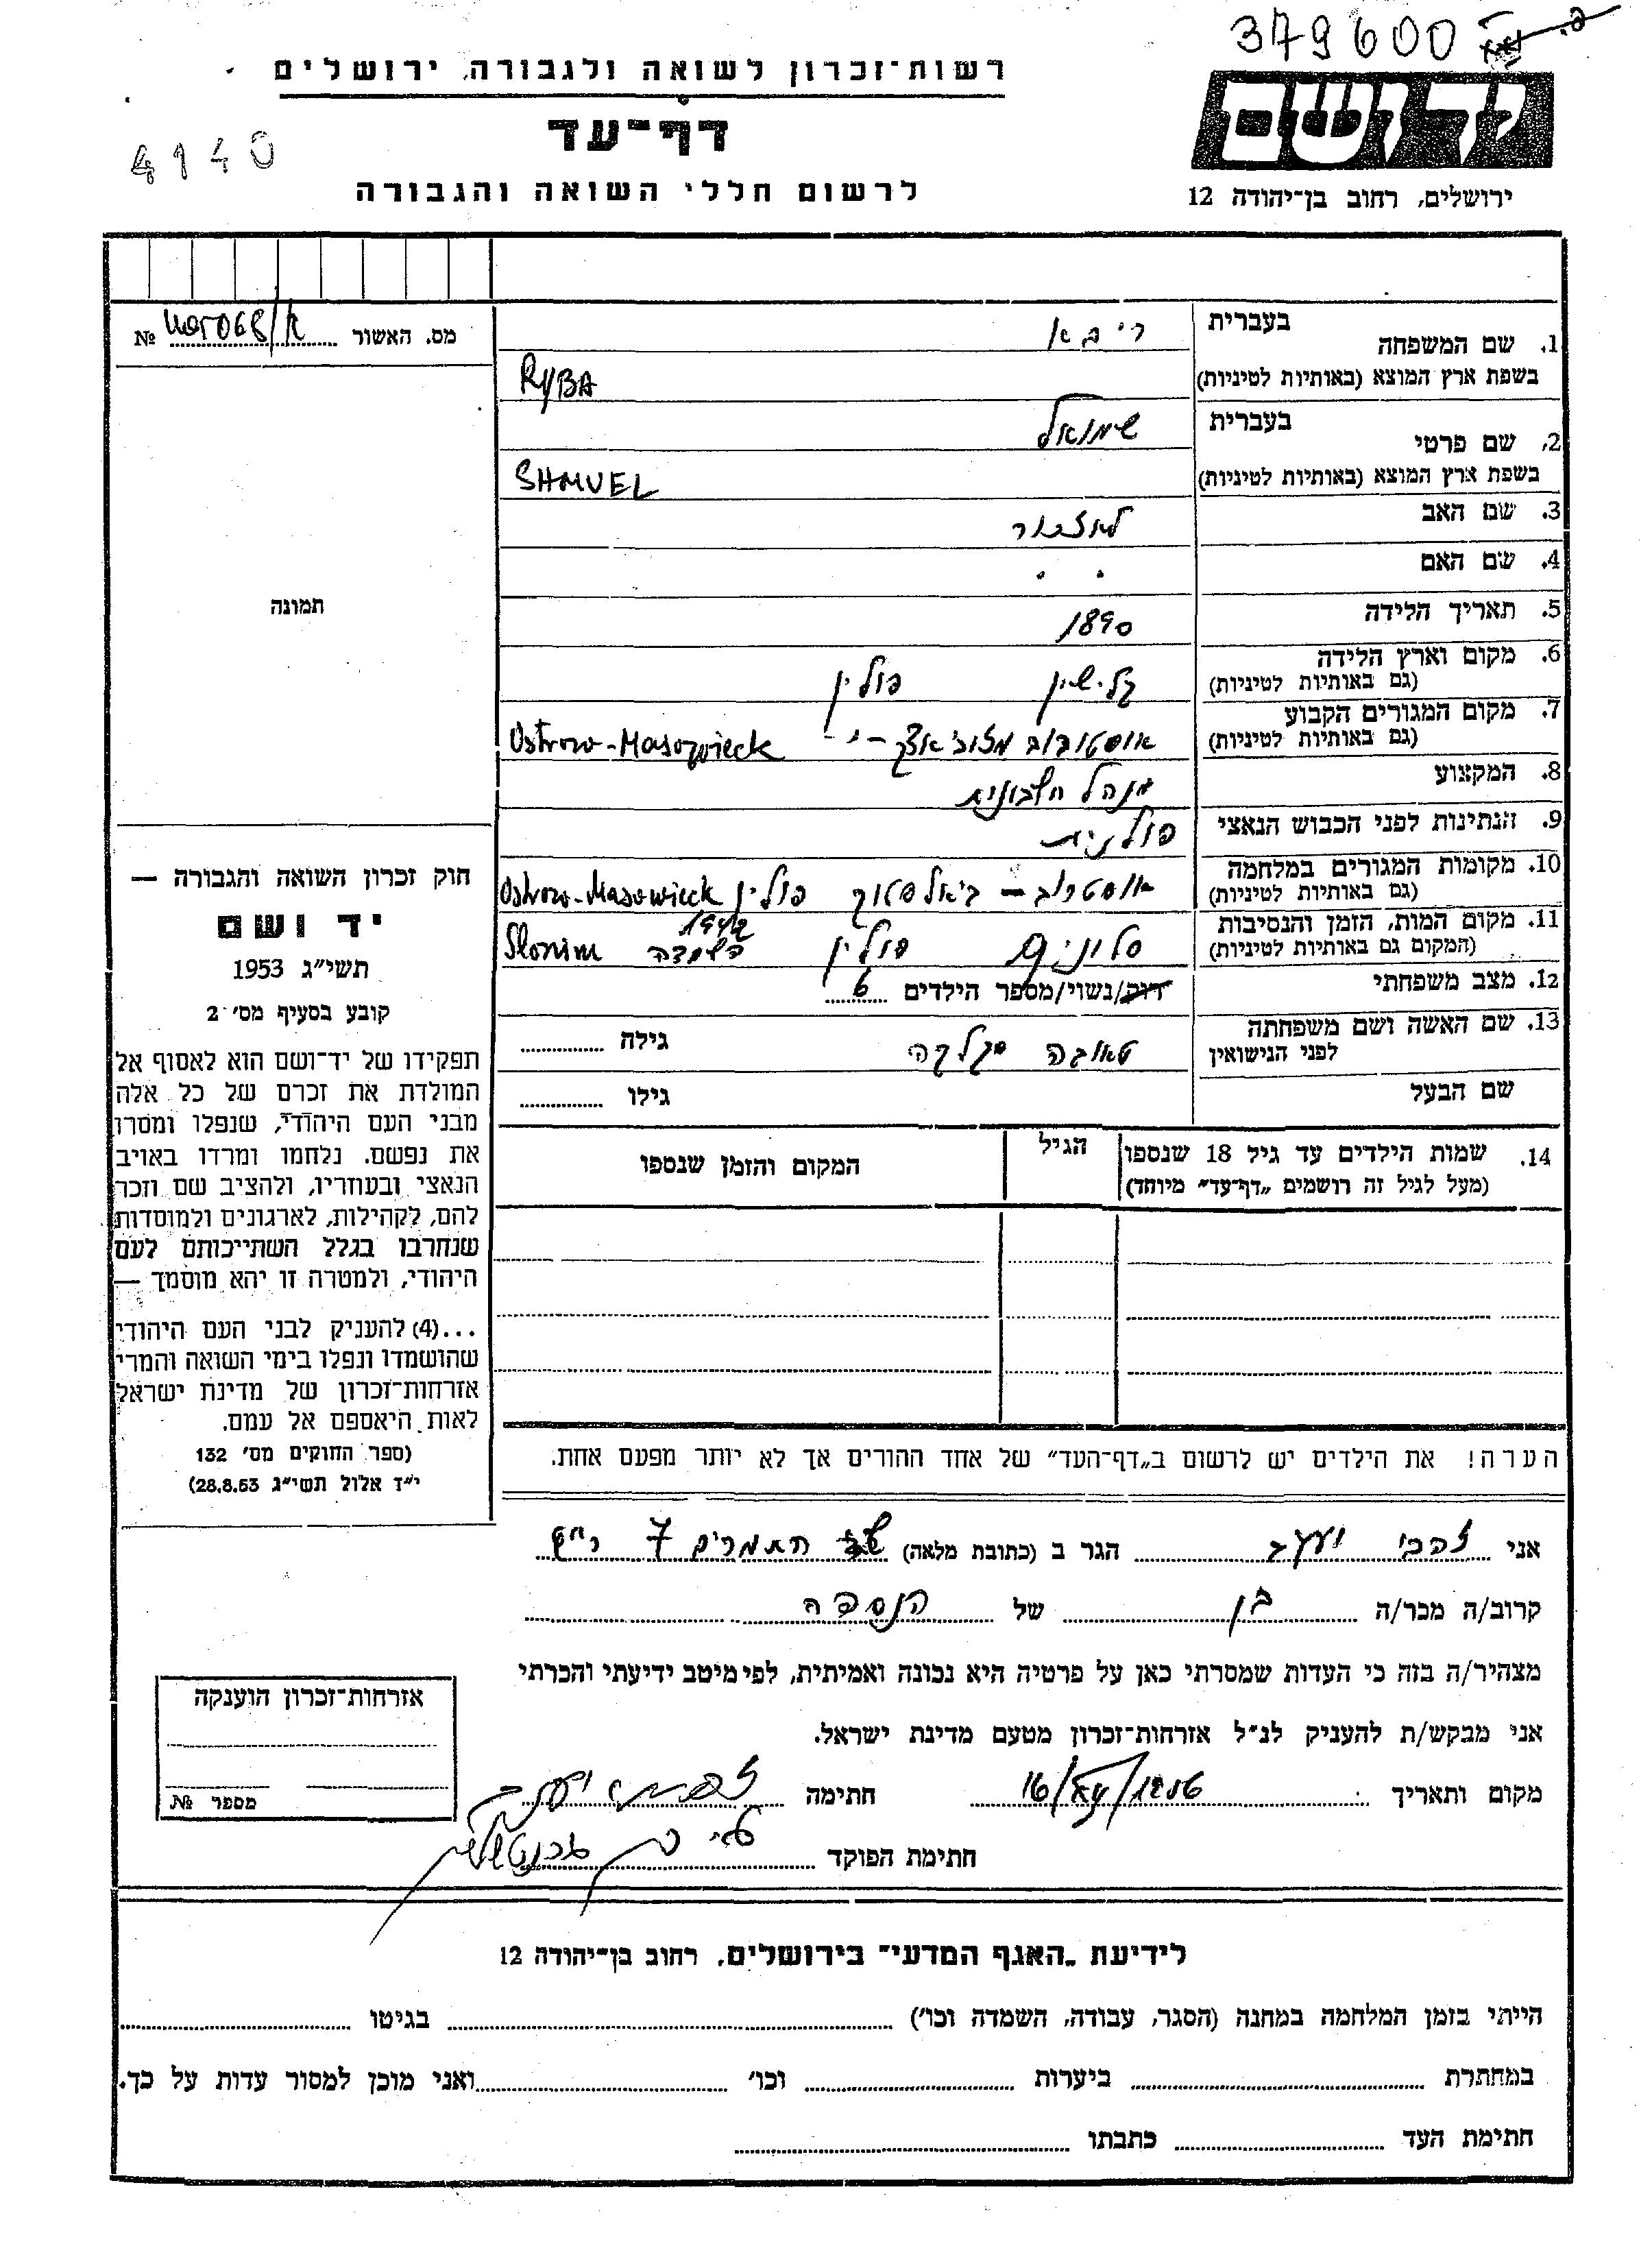 379600
רשות־זכרון לשואה ולגבורה, ירושלים
דף־עד
4140
לרשום חללי השואה והגבורה
יד ושם
ירושלים, רחוב בן־יהודה 12
מס. האשור № 
1. שם המשפחה
בעברית ריבא
בשפת ארץ המוצא (באותיות לטיניות) RYBA
2. שם פרטי
בעברית שמואל
בשפת ארץ המוצא (באותיות לטיניות) SHMUEL
3. שם האב
4. שם האם
5. תאריך הלידה 1890
6. מקום וארץ הלידה
(גם באותיות לטיניות) פולין
7. מקום המגורים הקבוע
(גם באותיות לטיניות) Ostrow-Masowieck
8. המקצוע מנהל חשבונות
9. הנתינות לפני הכבוש הנאצי פולנית
10. מקומות המגורים במלחמה
(גם באותיות לטיניות) אוסטרוב – ביאלסטוק פולין Ostrow-Masowieck
11. מקום המות, הזמן והנסיבות
(המקום גם באותיות לטיניות) סלונים פולין 1942 השמדה Slonim
12. מצב משפחתי רווק/נשוי/מספר הילדים 6
13. שם האשה ושם משפחתה
לפני הנישואין טאובה גילה
שם הבעל גילו
14. שמות הילדים עד גיל 18 שנספו
(מעל לגיל זה רושמים „דף־עד” מיוחד)
הגיל
המקום והזמן שנספו
הערה! את הילדים יש לרשום ב„דף־העד” של אחד ההורים אך לא יותר מפעם אחת.
תמונה
חוק זכרון השואה והגבורה —
יד ושם
תשי״ג 1953
קובע בסעיף מס׳ 2
תפקידו של יד־ושם הוא לאסוף אל
המולדת את זכרם של כל אלה
מבני העם היהודי, שנפלו ומסרו
את נפשם. נלחמו ומרדו באויב
הנאצי ובעוזריו, ולהציב שם וזכר
להם, לקהילות, לארגונים ולמוסדות
שנחרבו בגלל השתייכותם לעם
היהודי, ולמטרה זו יהא מוסמך —
...(4) להעניק לבני העם היהודי
שהושמדו ונפלו בימי השואה והמרי
אזרחות־זכרון של מדינת ישראל
לאות היאספם אל עמם.
(ספר החוקים מס׳ 132
י״ד אלול תשי״ג 28.8.53)
אני זהבי יעקב הגר ב (כתובת מלאה) התמרים 7
קרוב/ה מכר/ה בן של הנספה
מצהיר/ה בזה כי העדות שמסרתי כאן על פרטיה היא נכונה ואמיתית, לפי מיטב ידיעתי והכרתי
אני מבקש/ת להעניק לנ״ל אזרחות־זכרון מטעם מדינת ישראל.
מקום ותאריך חתימה זהבי יעקב
חתימת הפוקד
אזרחות־זכרון הוענקה
מספר №
לידיעת „האגף המדעי” בירושלים, רחוב בן־יהודה 12
הייתי בזמן המלחמה במחנה (הסגר, עבודה, השמדה וכו׳) בגיטו
במחתרת ביערות וכו׳ ואני מוכן למסור עדות על כך.
חתימת העד כתבתו